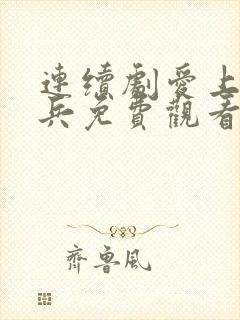 連續劇愛上
兵免費觀看
齊魯風